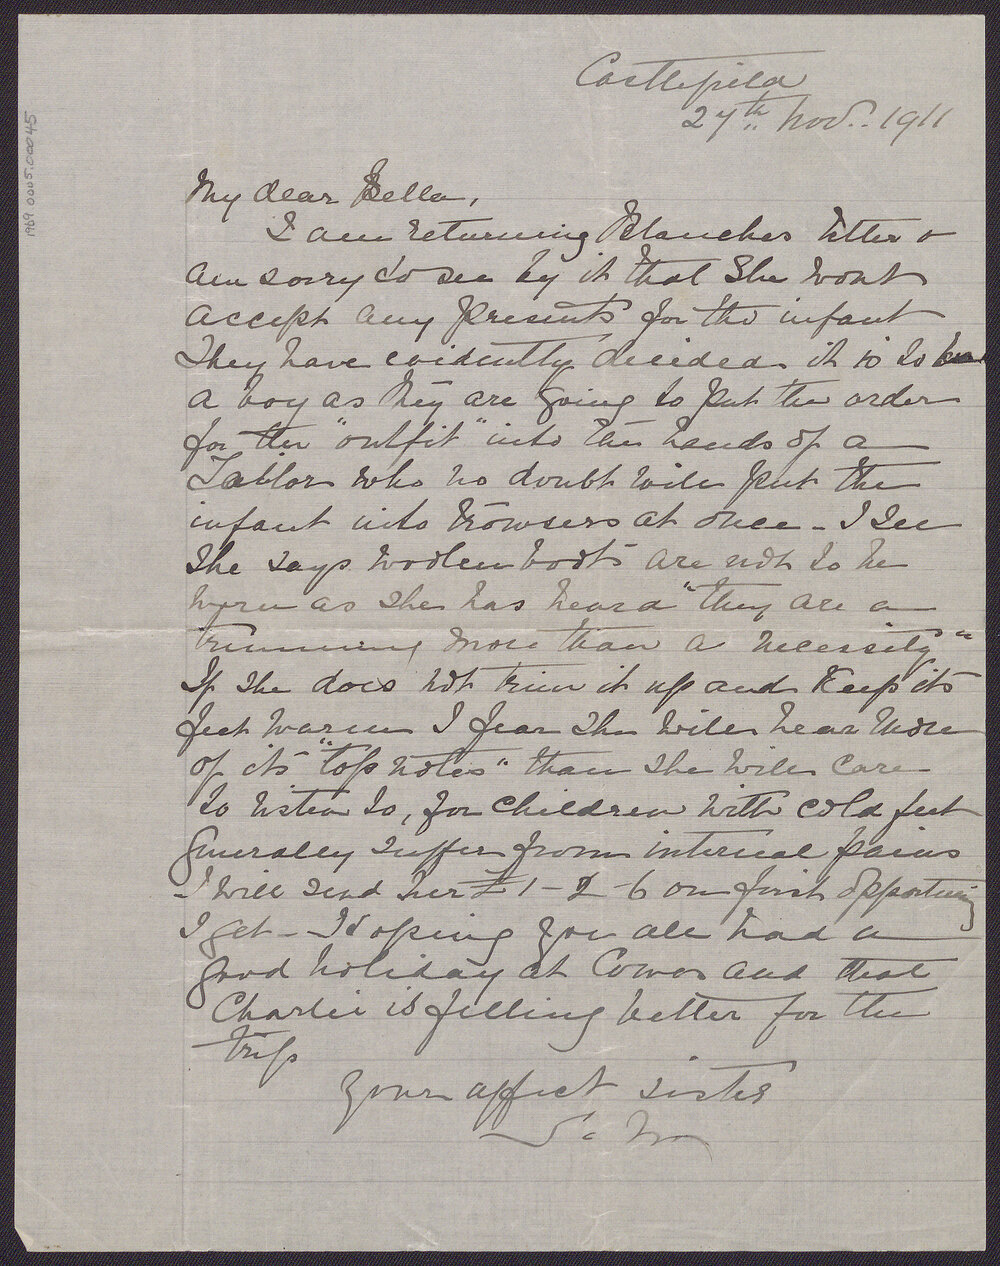 1969.0005.00045
Castlefield
27th Nov. 1911
My dear Bella,
I am returning Blanches letter &
am sorry to see by it that she wont
accept any presents for the infant
They have evidently decided it is to be
a boy as they are going to put the order
for the "outfit" into the hands of a
Tailor who no doubt will put the
infant into trowsers at once – I see
she says woolen boots are not to be
worn as she has heard "they are a
trimming more than a necessity"
If she does not trim it up and keep its
feet warm I fear she will hear more
of its "top notes" than she will care
to listen to, for children with cold feet
generally suffer from internal pains
– I will send her £1-2-6 on first opportunity
I get – Hoping you all had a
good holiday at Cowes and that
Charlie is felling better for the
trip
Your affect sister